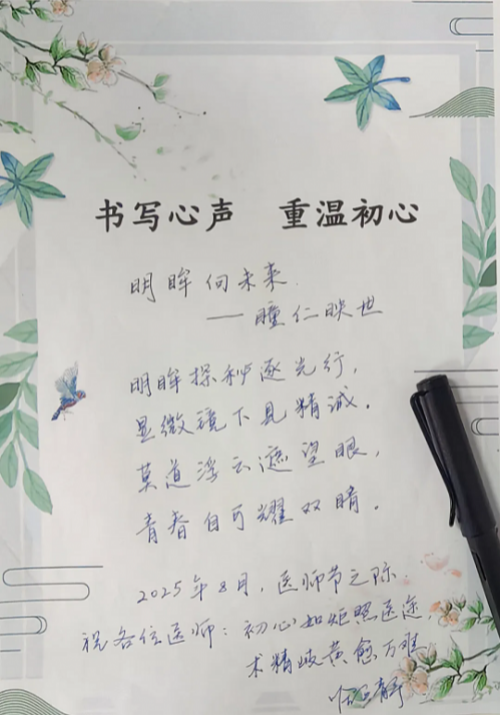 书写心声 重温初心
明眸向未来
——瞳仁映世
明眸探秘逐光行，
显微镜下见精诚。
莫道浮云遮望眼，
青春自可耀双睛。
2025年8月，医师节之际
祝各位医师：初心如炬照医途，
术精岐黄愈万难
静